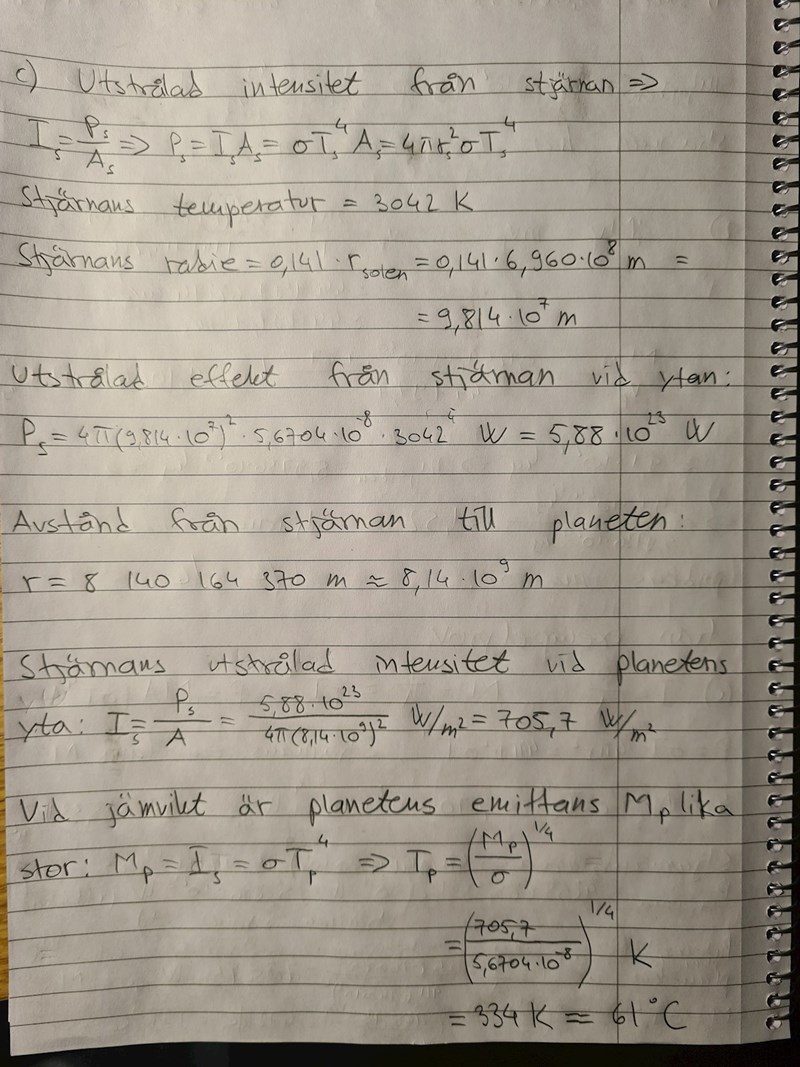 c) Utstrålad intensitet från stjärnan =>
I_s = P_s/A_s => P_s = I_s A_s = σT_s^4 A_s = 4πr_s^2 σT_s^4
Stjärnans temperatur = 3042 K
Stjärnans radie = 0,141 · r_solen = 0,141 · 6,960 · 10^8 m =
= 9,814 · 10^7 m
Utstrålad effekt från stjärnan vid ytan:
P_s = 4π(9,814 · 10^7)^2 · 5,6704 · 10^-8 · 3042^4 W = 5,88 · 10^23 W
Avstånd från stjärnan till planeten:
r = 8 140 164 370 m ≈ 8,14 · 10^9 m
Stjärnans utstrålad intensitet vid planetens
yta: I_s = P_s/A = 5,88 · 10^23/4π(8,14 · 10^9)^2 W/m^2 = 705,7 W/m^2
Vid jämvikt är planetens emittans M_p lika
stor: M_p = I_s = σT_p^4 => T_p = (M_p/σ)^1/4
= (705,7/5,6704 · 10^-8)^1/4 K
= 334 K ≈ 61°C